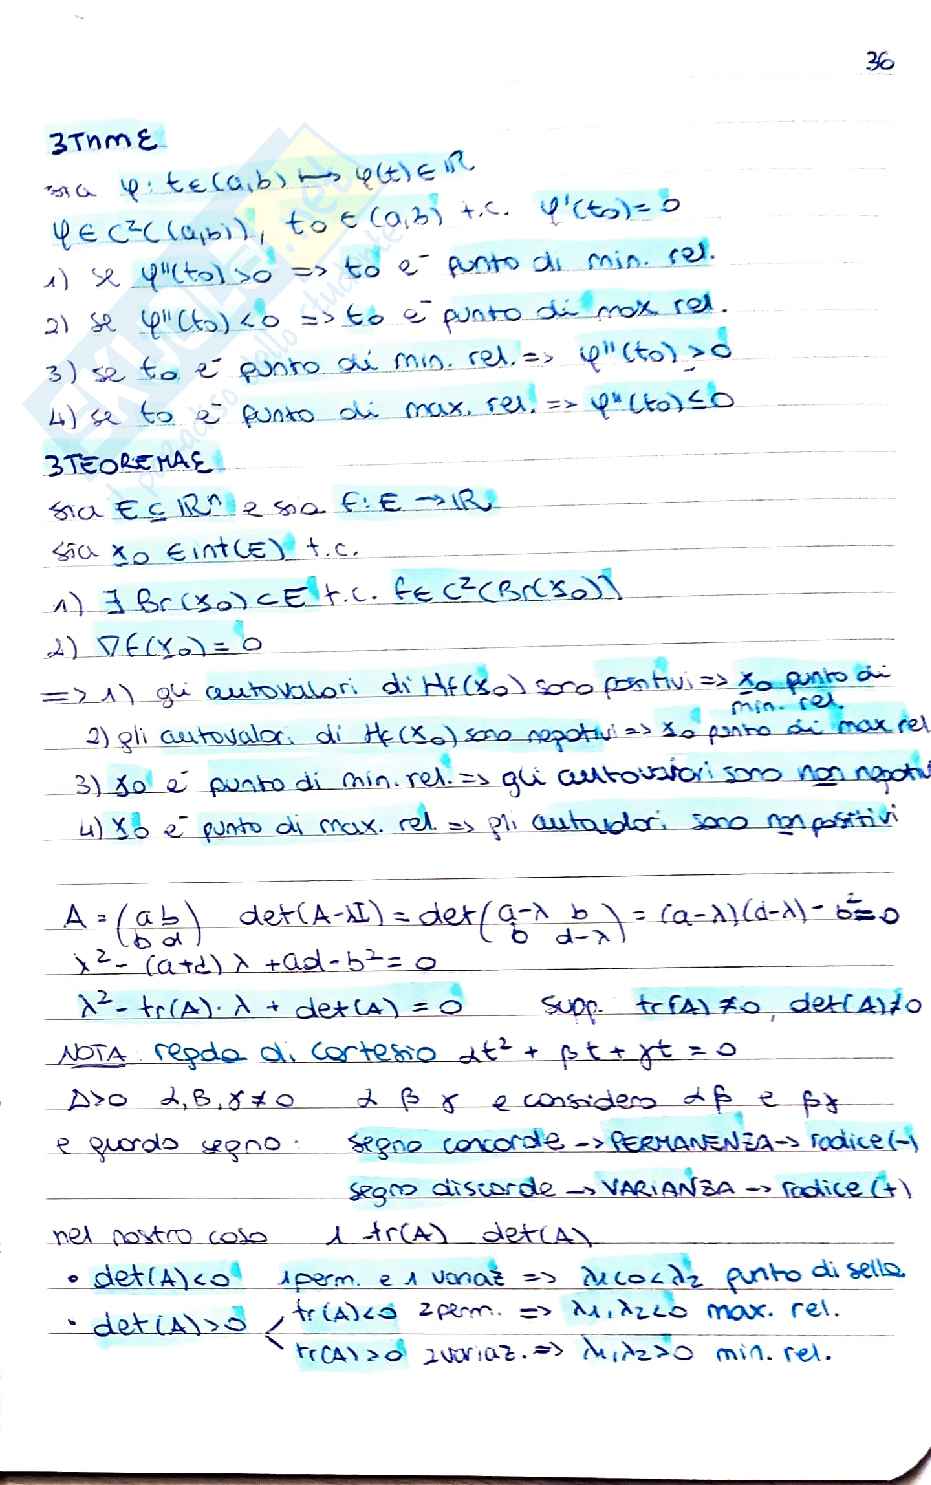 36
ƷTnmE
sia φ: t∈(a,b) ↦ φ(t)∈ℝ
φ∈C²((a,b)), t₀∈(a,b) t.c. φ'(t₀)=0
1) se φ''(t₀)>0 => t₀ è punto di min. rel.
2) se φ''(t₀)<0 => t₀ è punto di max rel.
3) se t₀ è punto di min. rel. => φ''(t₀)≥0
4) se t₀ è punto di max. rel. => φ''(t₀)≤0
ƷTEOREMAƐ
sia E⊆ℝⁿ e sia f: E→ℝ
sia x₀ ∈ int(E) t.c.
1) ∃ Br(x₀)⊂E t.c. f∈C²(Br(x₀))
2) ∇f(x₀)=0
=> 1) gli autovalori di Hf(x₀) sono positivi => x₀ punto di
min. rel.
2) gli autovalori di Hf(x₀) sono negativi => x₀ punto di max rel
3) x₀ è punto di min. rel. => gli autovalori sono non negativi
4) x₀ è punto di max. rel. => gli autovalori sono non positivi
A = (a b) det(A-λI) = det(a-λ b) = (a-λ)(d-λ) - b²=0
(b d) (b d-λ)
λ² - (a+d)λ + ad - b² = 0
λ² - tr(A)·λ + det(A) = 0 supp. tr(A)≠0, det(A)≠0
NOTA regola di cartesio αt² + βt + γt = 0
Δ>0 α,β,γ≠0 α β γ e considero αβ e βγ
e guardo segno: segno concorde → PERMANENZA → radice(-)
segno discorde → VARIANZA → radice (+)
nel nostro caso 1 tr(A) det(A)
• det(A)<0 1perm. e 1 variaz => λ₁<0<λ₂ punto di sella
tr(A)<0 2perm. => λ₁,λ₂<0 max. rel.
• det(A)>0
tr(A)>0 2variaz. => λ₁,λ₂>0 min. rel.
SKUOLA.net
il paradiso dello studente